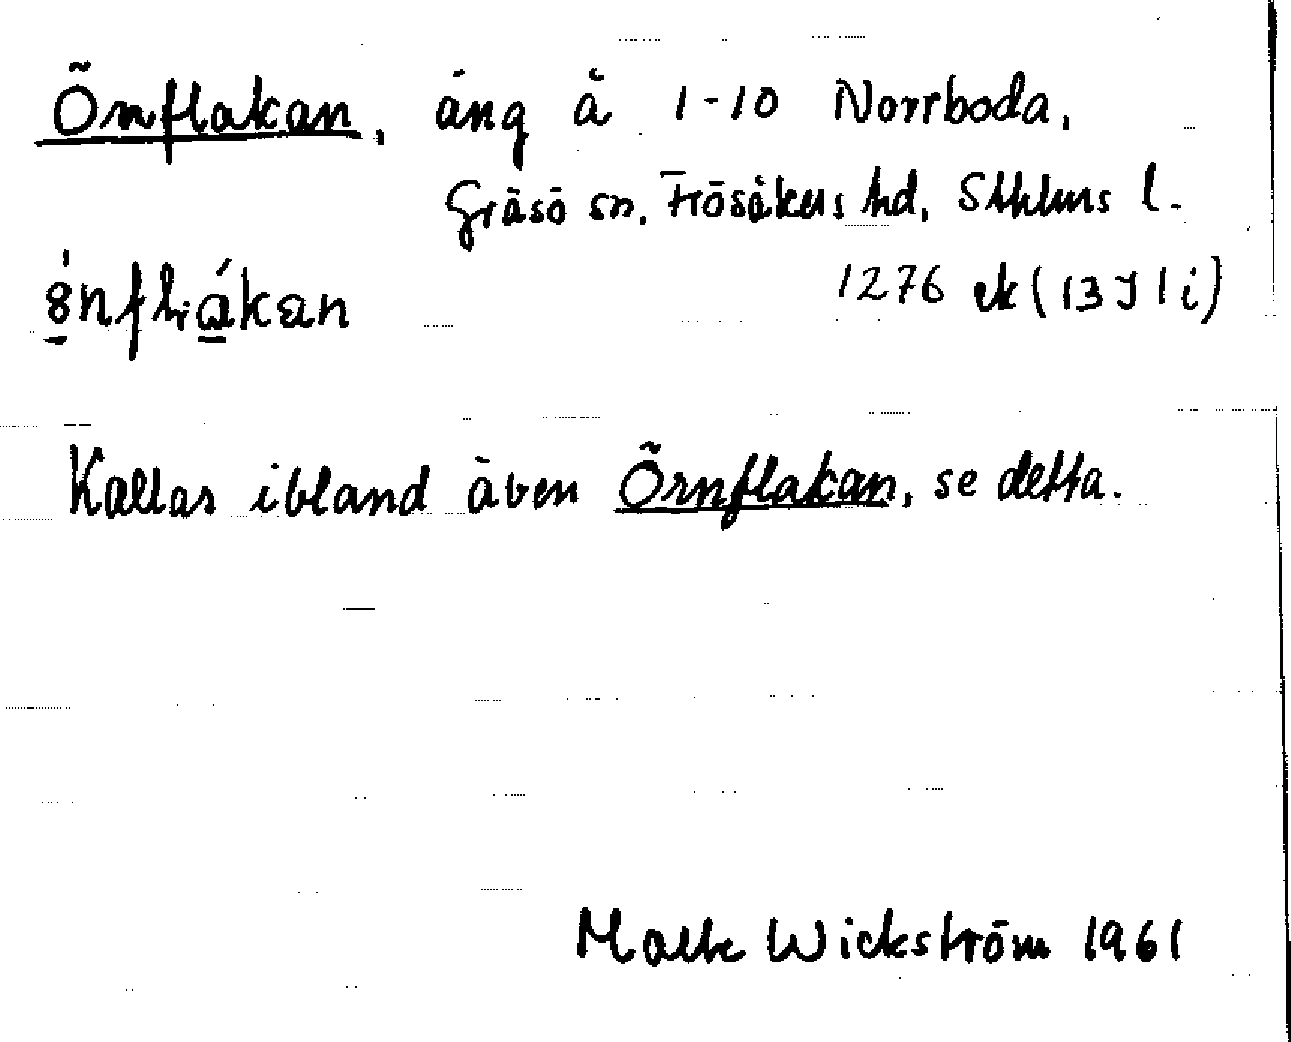 Önflakan, äng å 1-10 Norrboda,
Gräsö sn. Frösåkers hd, Sthlms l.
1276 ek (13 J 1 i)
Kallas ibland även Örnflakan, se detta.
Wickström 1961